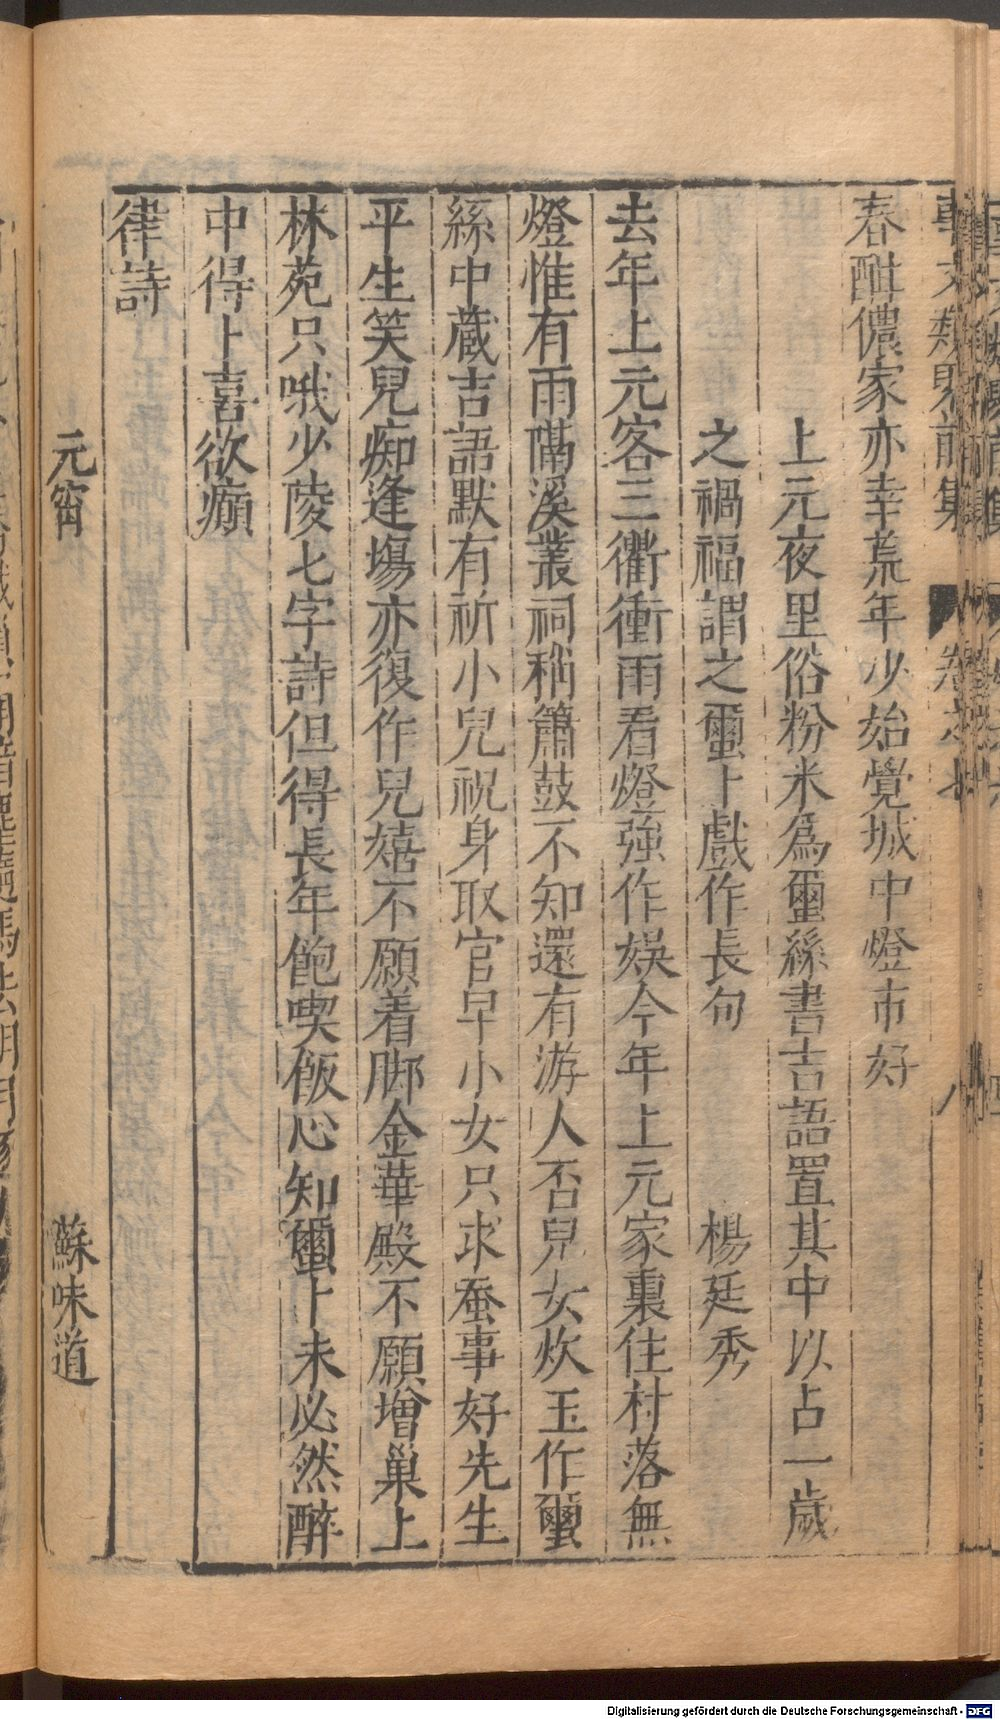 事文類聚前集 卷之七 八
春酣儂家亦幸荒年少始覺城中燈市好
上元夜里俗粉米爲蠒絲書吉語置其中以占一歲
之禍福謂之蠒卜戲作長句 楊廷秀
去年上元客三衢衝雨看燈強作娛今年上元家裏住村落無
燈惟有雨隔溪叢祠稍簫鼓不知還有游人否兒女炊玉作蠒
絲中藏吉語默有祈小兒祝身取官早小女只求蚕事好先生
平生笑兒痴逢塲亦復作兒嬉不願着脚金華殿不願增巢上
林苑只哦少陵七字詩但得長年飽喫飯心知蠒卜未必然醉
中得卜喜欲癲
律詩
元宵 蘇味道
Digitalisierung gefördert durch die Deutsche Forschungsgemeinschaft - DFG